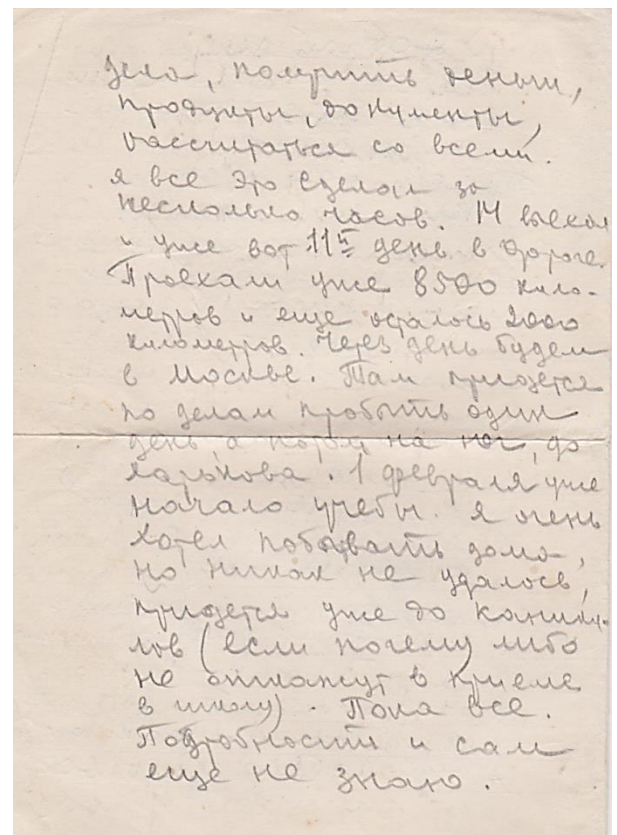 дела, получить деньги,
продукты, документы,
рассчитаться со всеми.
я все это сделал за
несколько часов. 14 выехал
и уже вот 11й день в дороге.
Проехали уже 8500 кило-
метров и еще осталось 2000
километров. Через день будем
в Москве. Там придется
по делам пробыть один
день, а потом на юг, до
Харькова. 1 февраля уже
начало учебы. Я очень
хотел побывать дома,
но никак не удалось,
придется уже до каник-
лов (если почему либо
не откажут в приеме
в школу). Пока все.
Подробностей и сам
еще не знаю.